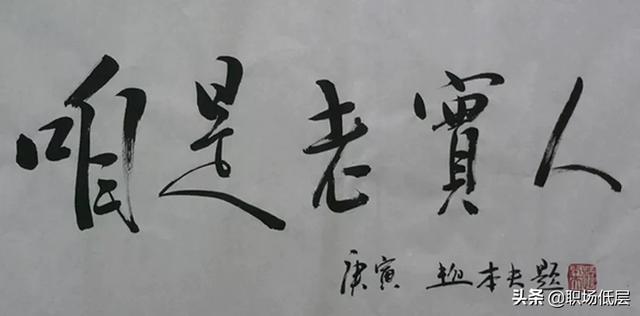 咱是老實人
庚寅 趙本夫題
头条 @职场低层